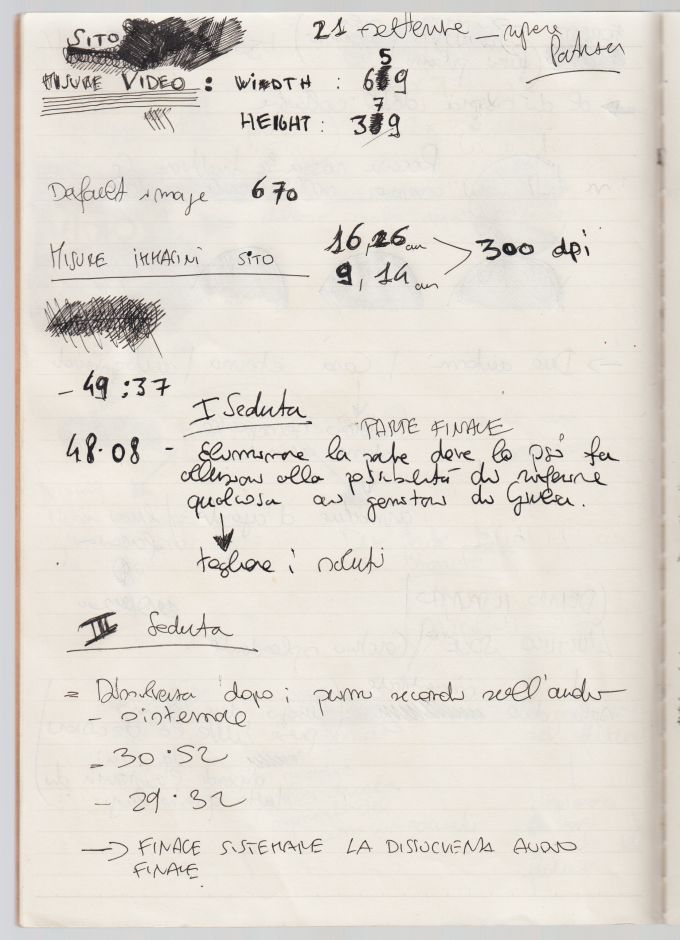 SITO
21 settembre _
MISURE VIDEO : WIDTH : 659
HEIGHT : 379
Default image 670
MISURE IMMAGINI SITO
16,26 cm
9,14 cm
300 dpi
- 49:37
I Seduta
PARTE FINALE
48.08 - Eliminare la parte dove lo psi fa
allusioni alla possibilità di riferire
qualcosa ai genitori di Giulia.
tagliare i saluti
III Seduta
= Dissolvenza dopo i primi secondi sull'audio
- sistemare
- 30.52
- 29.32
→ FINALE SISTEMARE LA DISSOLVENZA AUDIO
FINALE.